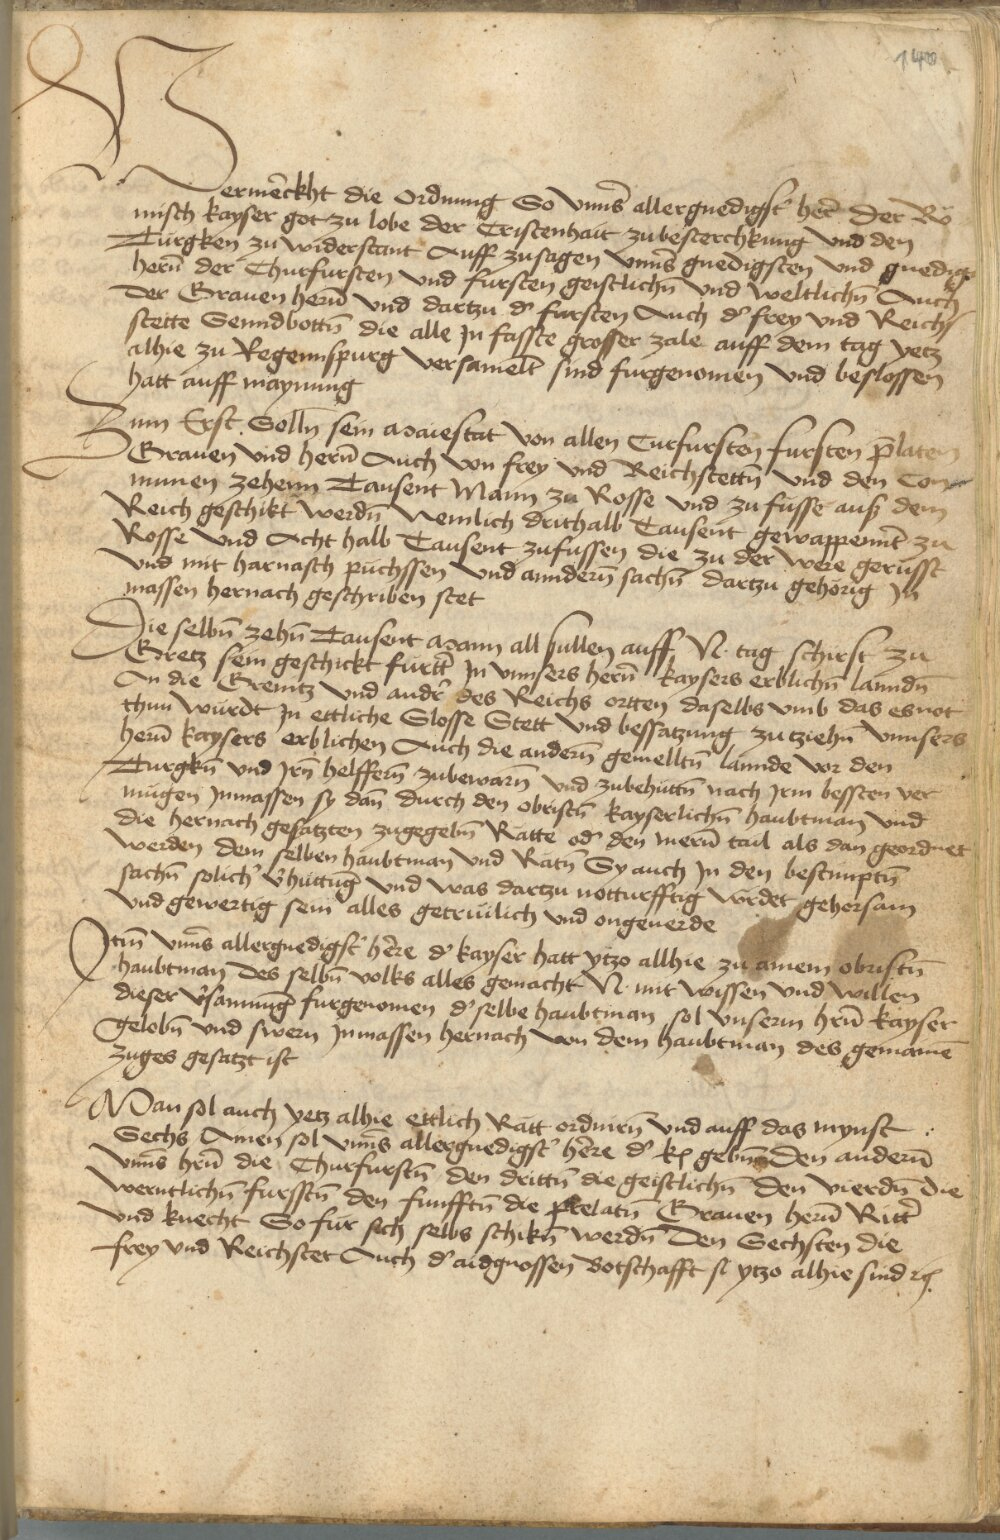 140
Vermerckht die Ordnung So vnns̄ allergnedigst' her̄ Der Rö
misch kayser got zu lobe der Cristenhait zubesterchkung vnd den
Türgken zu widerstant Auff zusagen vnns̄ gnedigsten vnd gnedigē
herñ der Churfursten vnd fursten geistlichñ vnd weltlichñ Auch
Der Grauen herñ vnd dartzu d' fursten Auch d' frey vnd Reichs
stette Senndbottñ die alle Jn fasste grosser zale auff dem tag yetz
alhie zu Regennspurg versamelt sind furgenomen vnd beslossen
hatt auff maynung
Zum Erst. Sollñ sein Maiestat von allen Curfursten fursten p̄laten
Grauen vnd herñ Auch von frey vnd Reichstettñ vnd den Com
munen zehenn Tausent Mann zu Rosse vnd zu fusse auß dem
Reich geschikt werdñ Nemlich drithalb Tausent gewappennt zu
Rosse vnd Acht halb Tausent zufussen die zu der were gerusst
vnd mit harnasch püchssen vnd annderñ sachñ dartzu gehörig Jn
massen hernach geschriben stet
Die selbñ zehñ Tausent Mann all sullen auff N. tag schirst zu
Gretz sein geschickt furtt' Jn vnnsers herñ kaysers erblichñ lanndñ
An die Grenitz vnd andr' des Reichs ortten daselbs vmb das es not
thun würdt Jn ettliche Slosse Stett vnd bessatzung zu tziehñ vnnsers
herñ kaysers erblichen Auch die anderñ gemelltñ lannde vor den
Turgkñ vnd Jrñ helfferñ zubewarñ vnd zubehüttñ nach Jrm bessten ver
mügen Jnmassen sy dañ durch den obristñ kayserlichñ haubtman vnd
die hernach gesatzten zugegebñ Ratte od' den merñ tail als dan geordnet
werden dem selben haubtman vnd Ratñ Sy auch Jn den bestimptñ
sachñ solich' v'hüttūg vnd was dartzu notturfftig wirdet gehorsam
vnd gewertig sein alles getrüilich vnd ongeuerde
Itm̄ vnns̄ allergnedigst' here d' kayser hatt ytzo allhie zu ainem obristñ
haubtman des selbñ volks alles gemacht N. mit wissen vnd willen
dieser v'samnūg furgenomen d' selbe haubtman sol vnserm hrñ kayser
gelobñ vnd swern Jnmassen hernach von dem haubtman des gemainē
zuges gesatzt ist
Man sol auch yetz alhie ettlich Rätt ordnirñ vnd auff das mynst
Sechs Ainen sol vnns̄ allergnedigst' here d' k. gebñ Den anderñ
vnns̄ hrñ die Churfurstñ den drittñ die geistlichñ Den vierdñ Die
werntlichñ fursstñ den funfftñ die prelatñ Grauen herñ Ritt'
vnd knecht So fur sich selbs schikñ werdñ Den Sechsten die
frey vnd Reichstet Auch d' aidgnossen Botschafft so ytzo alhie sind rc.